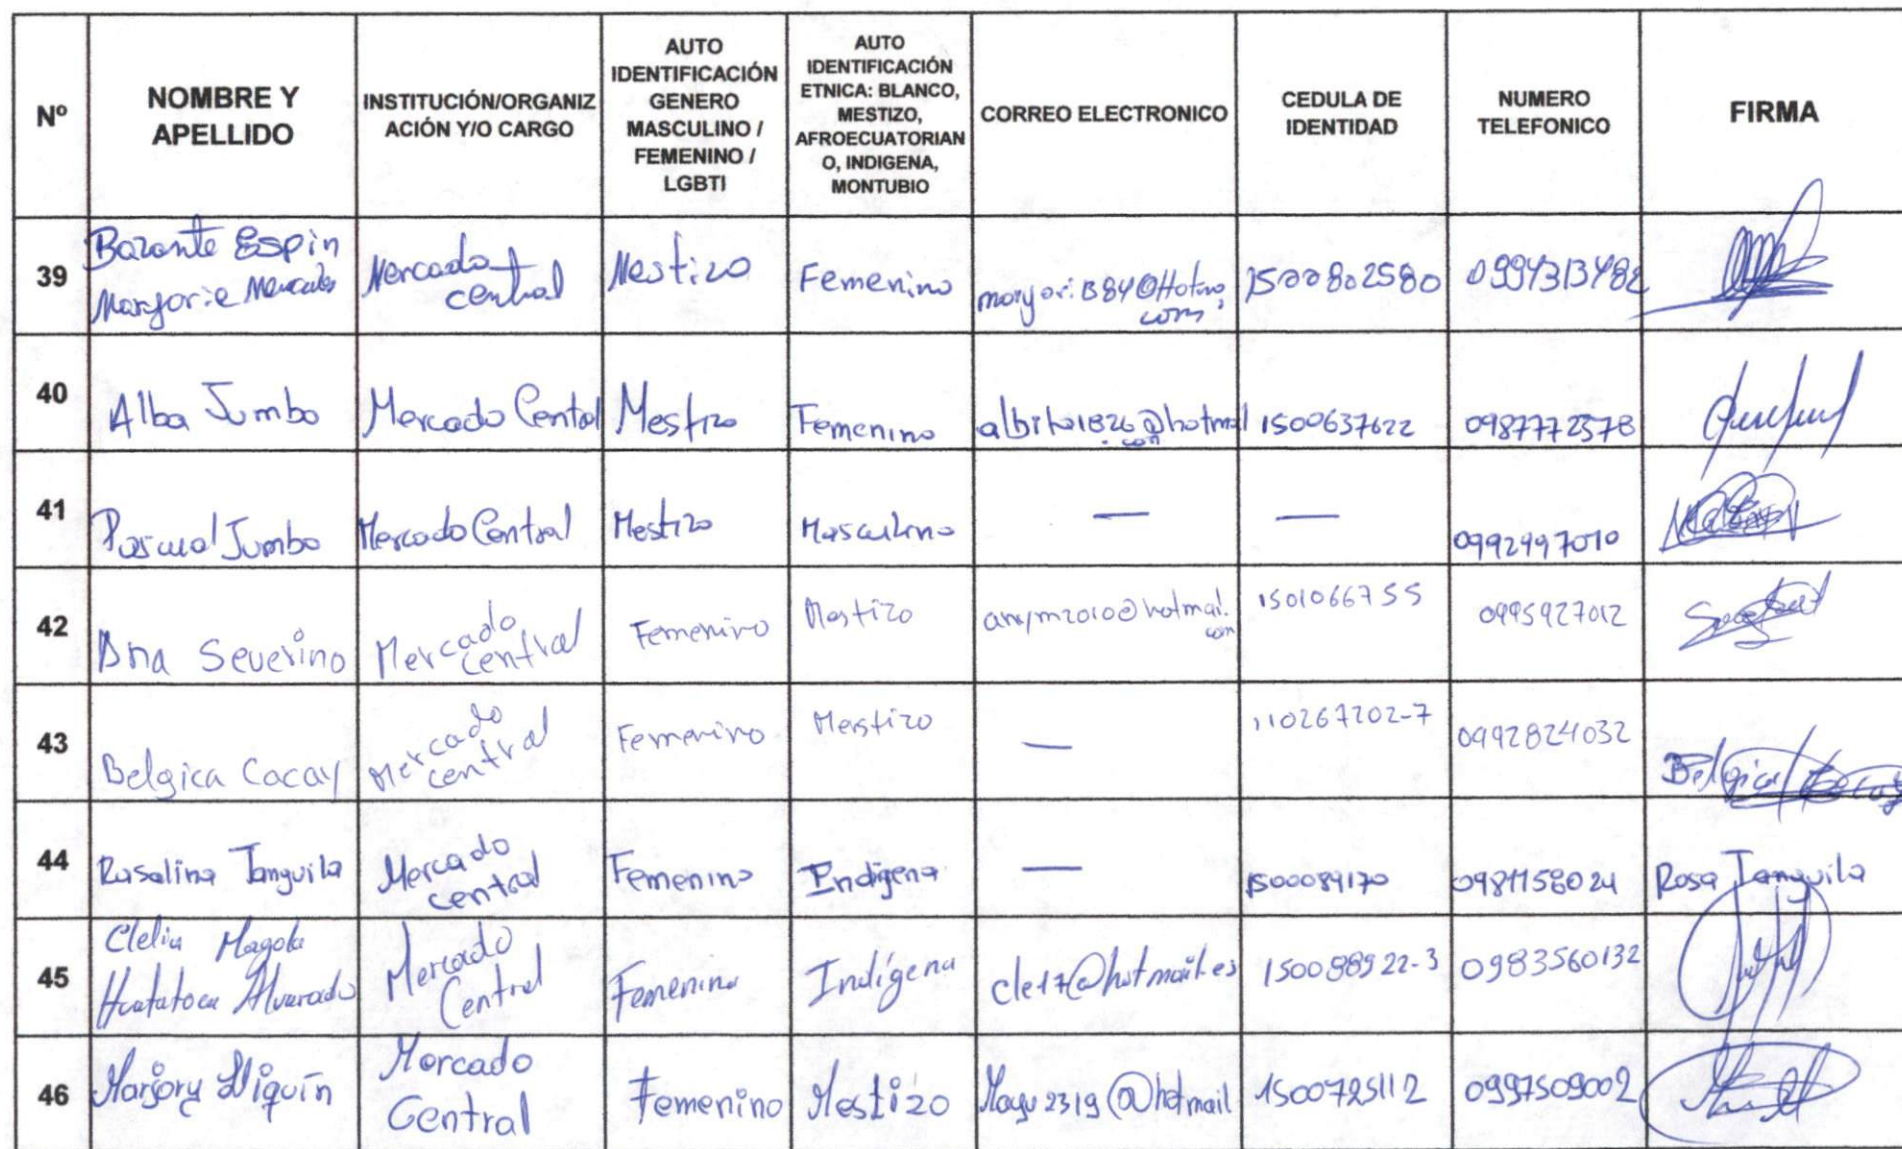 Nº
NOMBRE Y
APELLIDO
INSTITUCIÓN/ORGANIZ
ACIÓN Y/O CARGO
AUTO
IDENTIFICACIÓN
GENERO
MASCULINO /
FEMENINO /
LGBTI
AUTO
IDENTIFICACIÓN
ETNICA: BLANCO,
MESTIZO,
AFROECUATORIAN
O, INDIGENA,
MONTUBIO
CORREO ELECTRONICO
CEDULA DE
IDENTIDAD
NUMERO
TELEFONICO
FIRMA
39
Barante Espin
Marjorie Mercedes
Mercado
central
Mestizo
Femenino
1500802580
0994313482
40
Alba Jumbo
Mercado Cental
Mestizo
Femenino
1500637622
0987772578
41
Pascual Jumbo
Mercado Central
Mestizo
Masculino
—
—
0992497010
42
Ana Severino
Mercado
central
Femenino
Mestizo
anym2010@hotmail.
com
1501066755
0995927012
43
Belgica Cacay
Mercado
central
Femenino
Merstizo
—
110267202-7
0992824032
Belgica
44
Rosalina Tanguila
Mercado
central
Femenino
Indigena
—
1500089170
0981158024
Rosa Tanguila
45
Clelia Magola
Huatatoca Alvarado
Mercado
Central
Femenino
Indígena
cle17@hotmail.es
150088922-3
0983560132
46
Marjory Lliquín
Mercado
Central
Femenino
Mestizo
Magu2319@hotmail
1500725112
0997509002